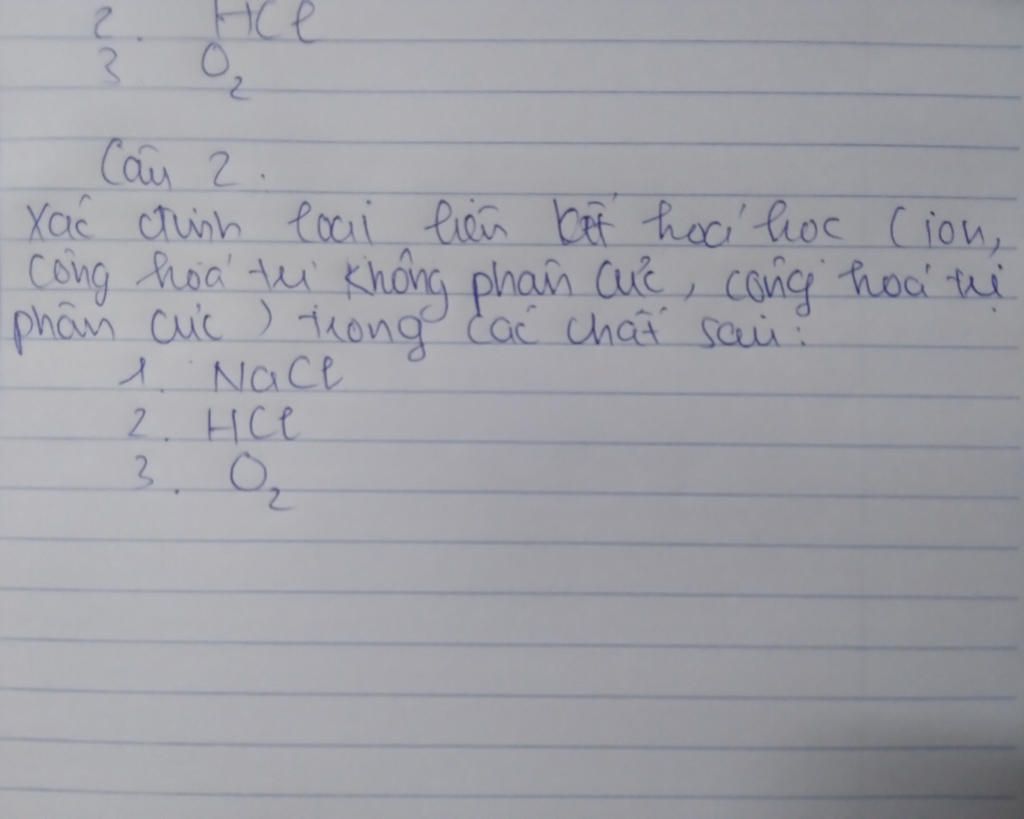 2. HCl
3 O₂
Câu 2.
Xác định loại liên kết hoá học (ion,
công hoá trị không phân cực, công hoá trị
phân cực) trong các chất sau:
1. NaCl
2. HCl
3. O₂